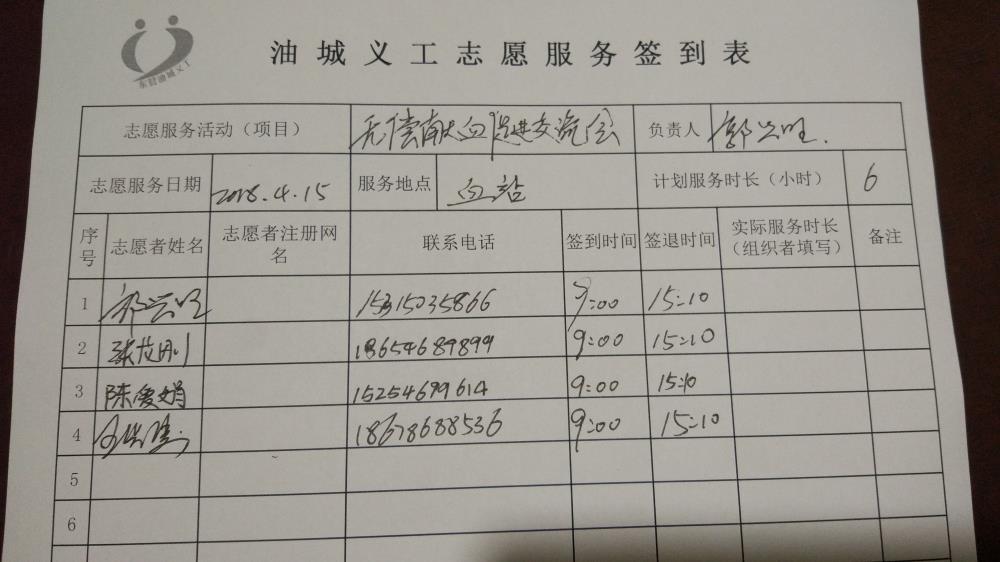 东营油城义工
油城义工志愿服务签到表
志愿服务活动（项目） 无偿献血促进交流会 负责人 郭兴旺
志愿服务日期 2018.4.15 服务地点 血站 计划服务时长（小时） 6
序号 志愿者姓名 志愿者注册网名 联系电话 签到时间 签退时间 实际服务时长（组织者填写） 备注
1 郭兴旺 15315035866 9:00 15:10
2 张龙刚 18654689899 9:00 15:10
3 陈爱娟 15254679614 9:00 15:10
4 18678688536 9:00 15:10
5
6